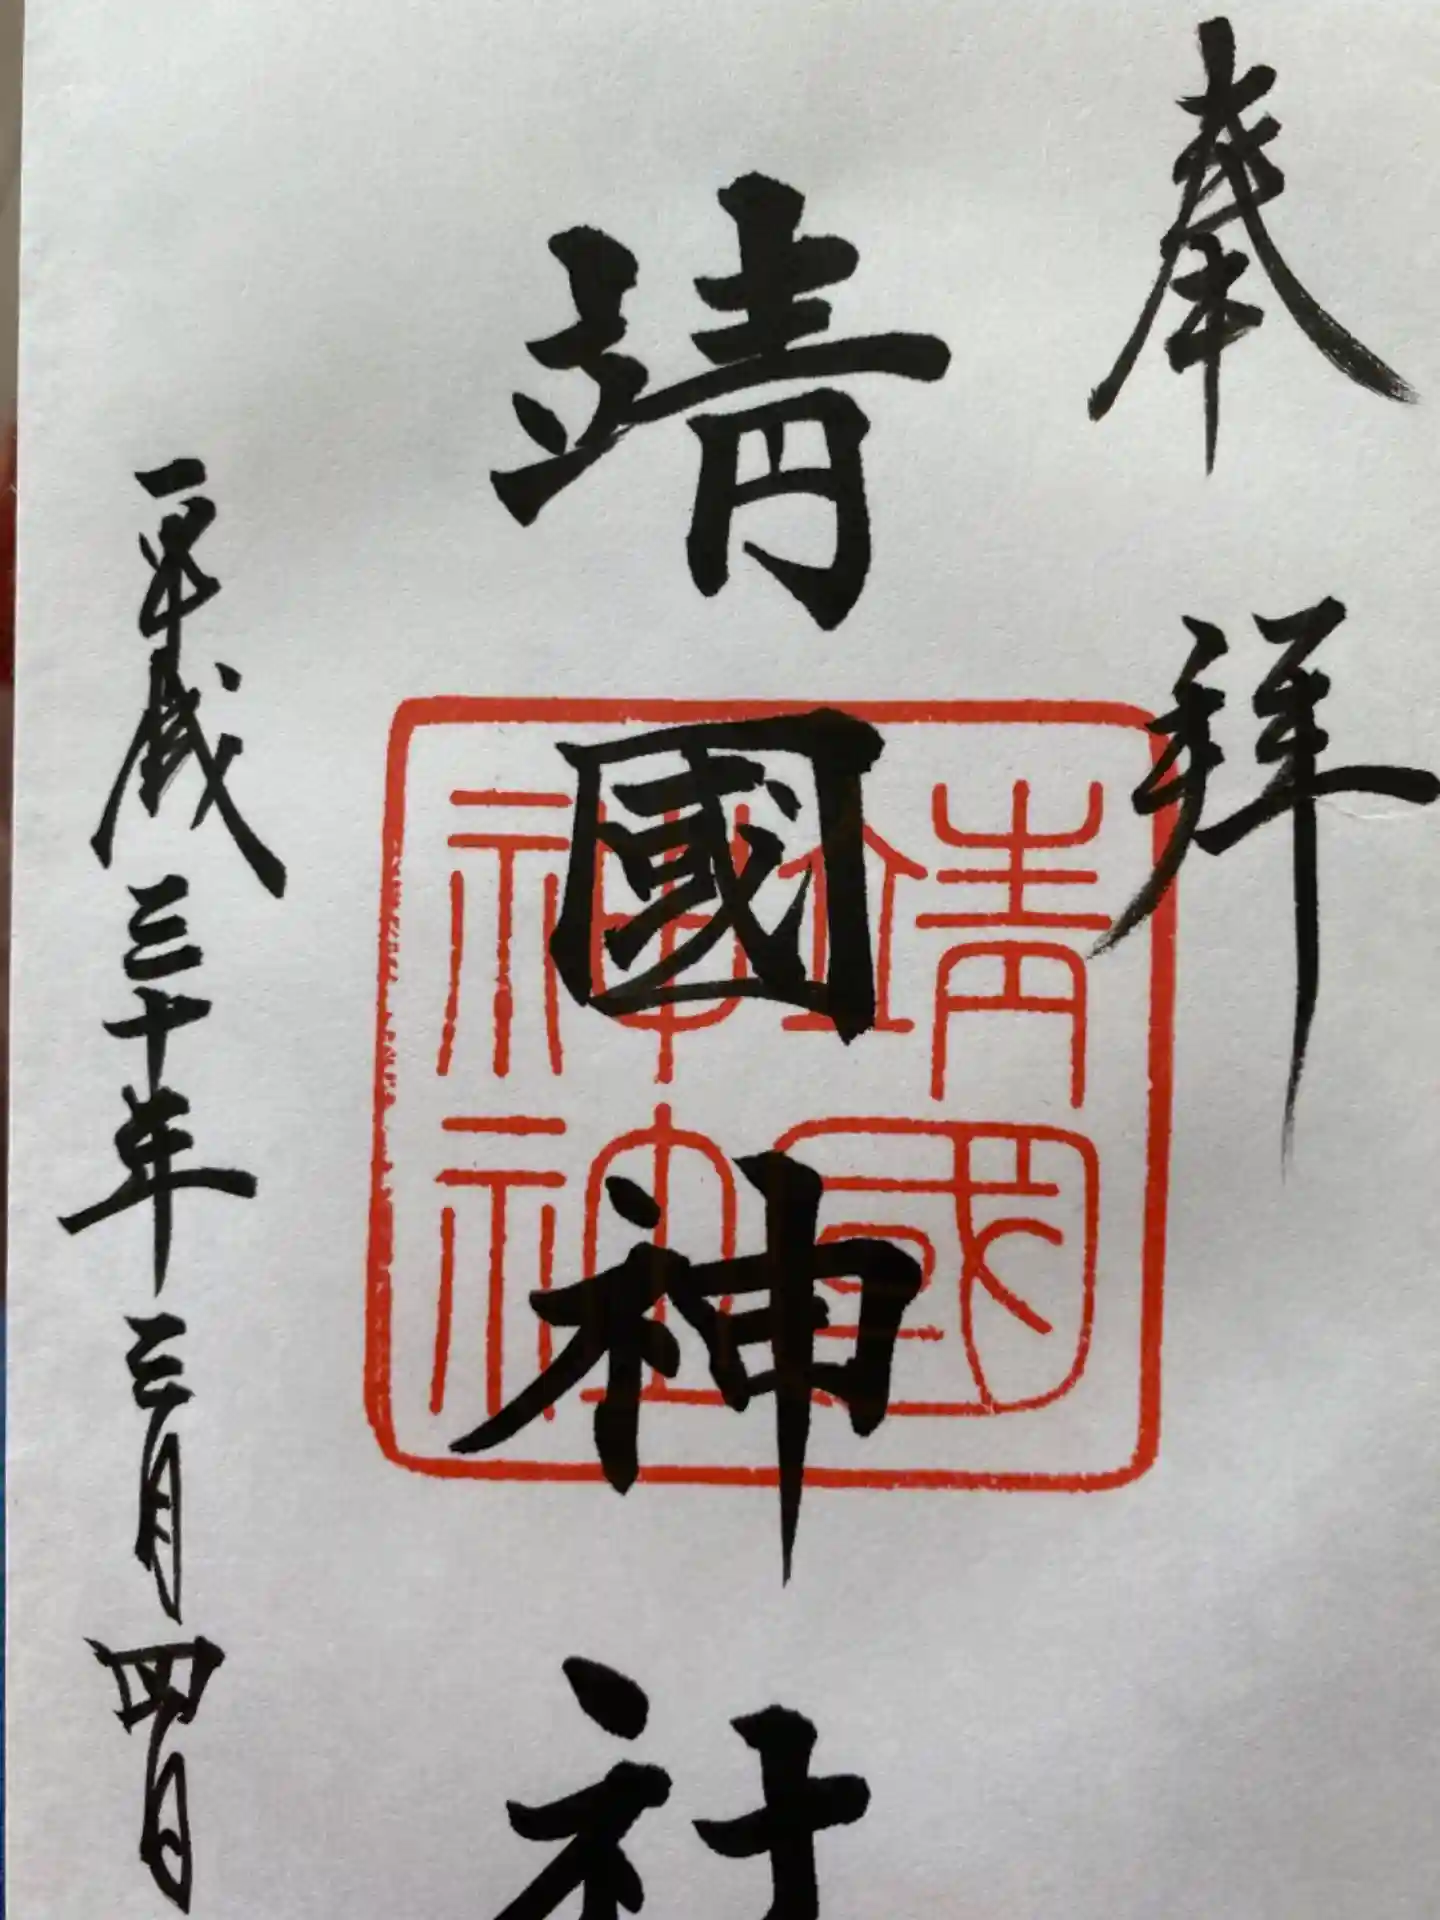 奉拝
靖國神社
靖國神社
平成三十年三月四日